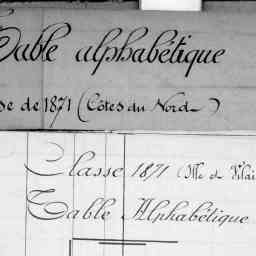 Table alphabétique
se de 1871 (Côtes du Nord_)
Classe 1871 (Ille & Vilai
Table Alphabétique